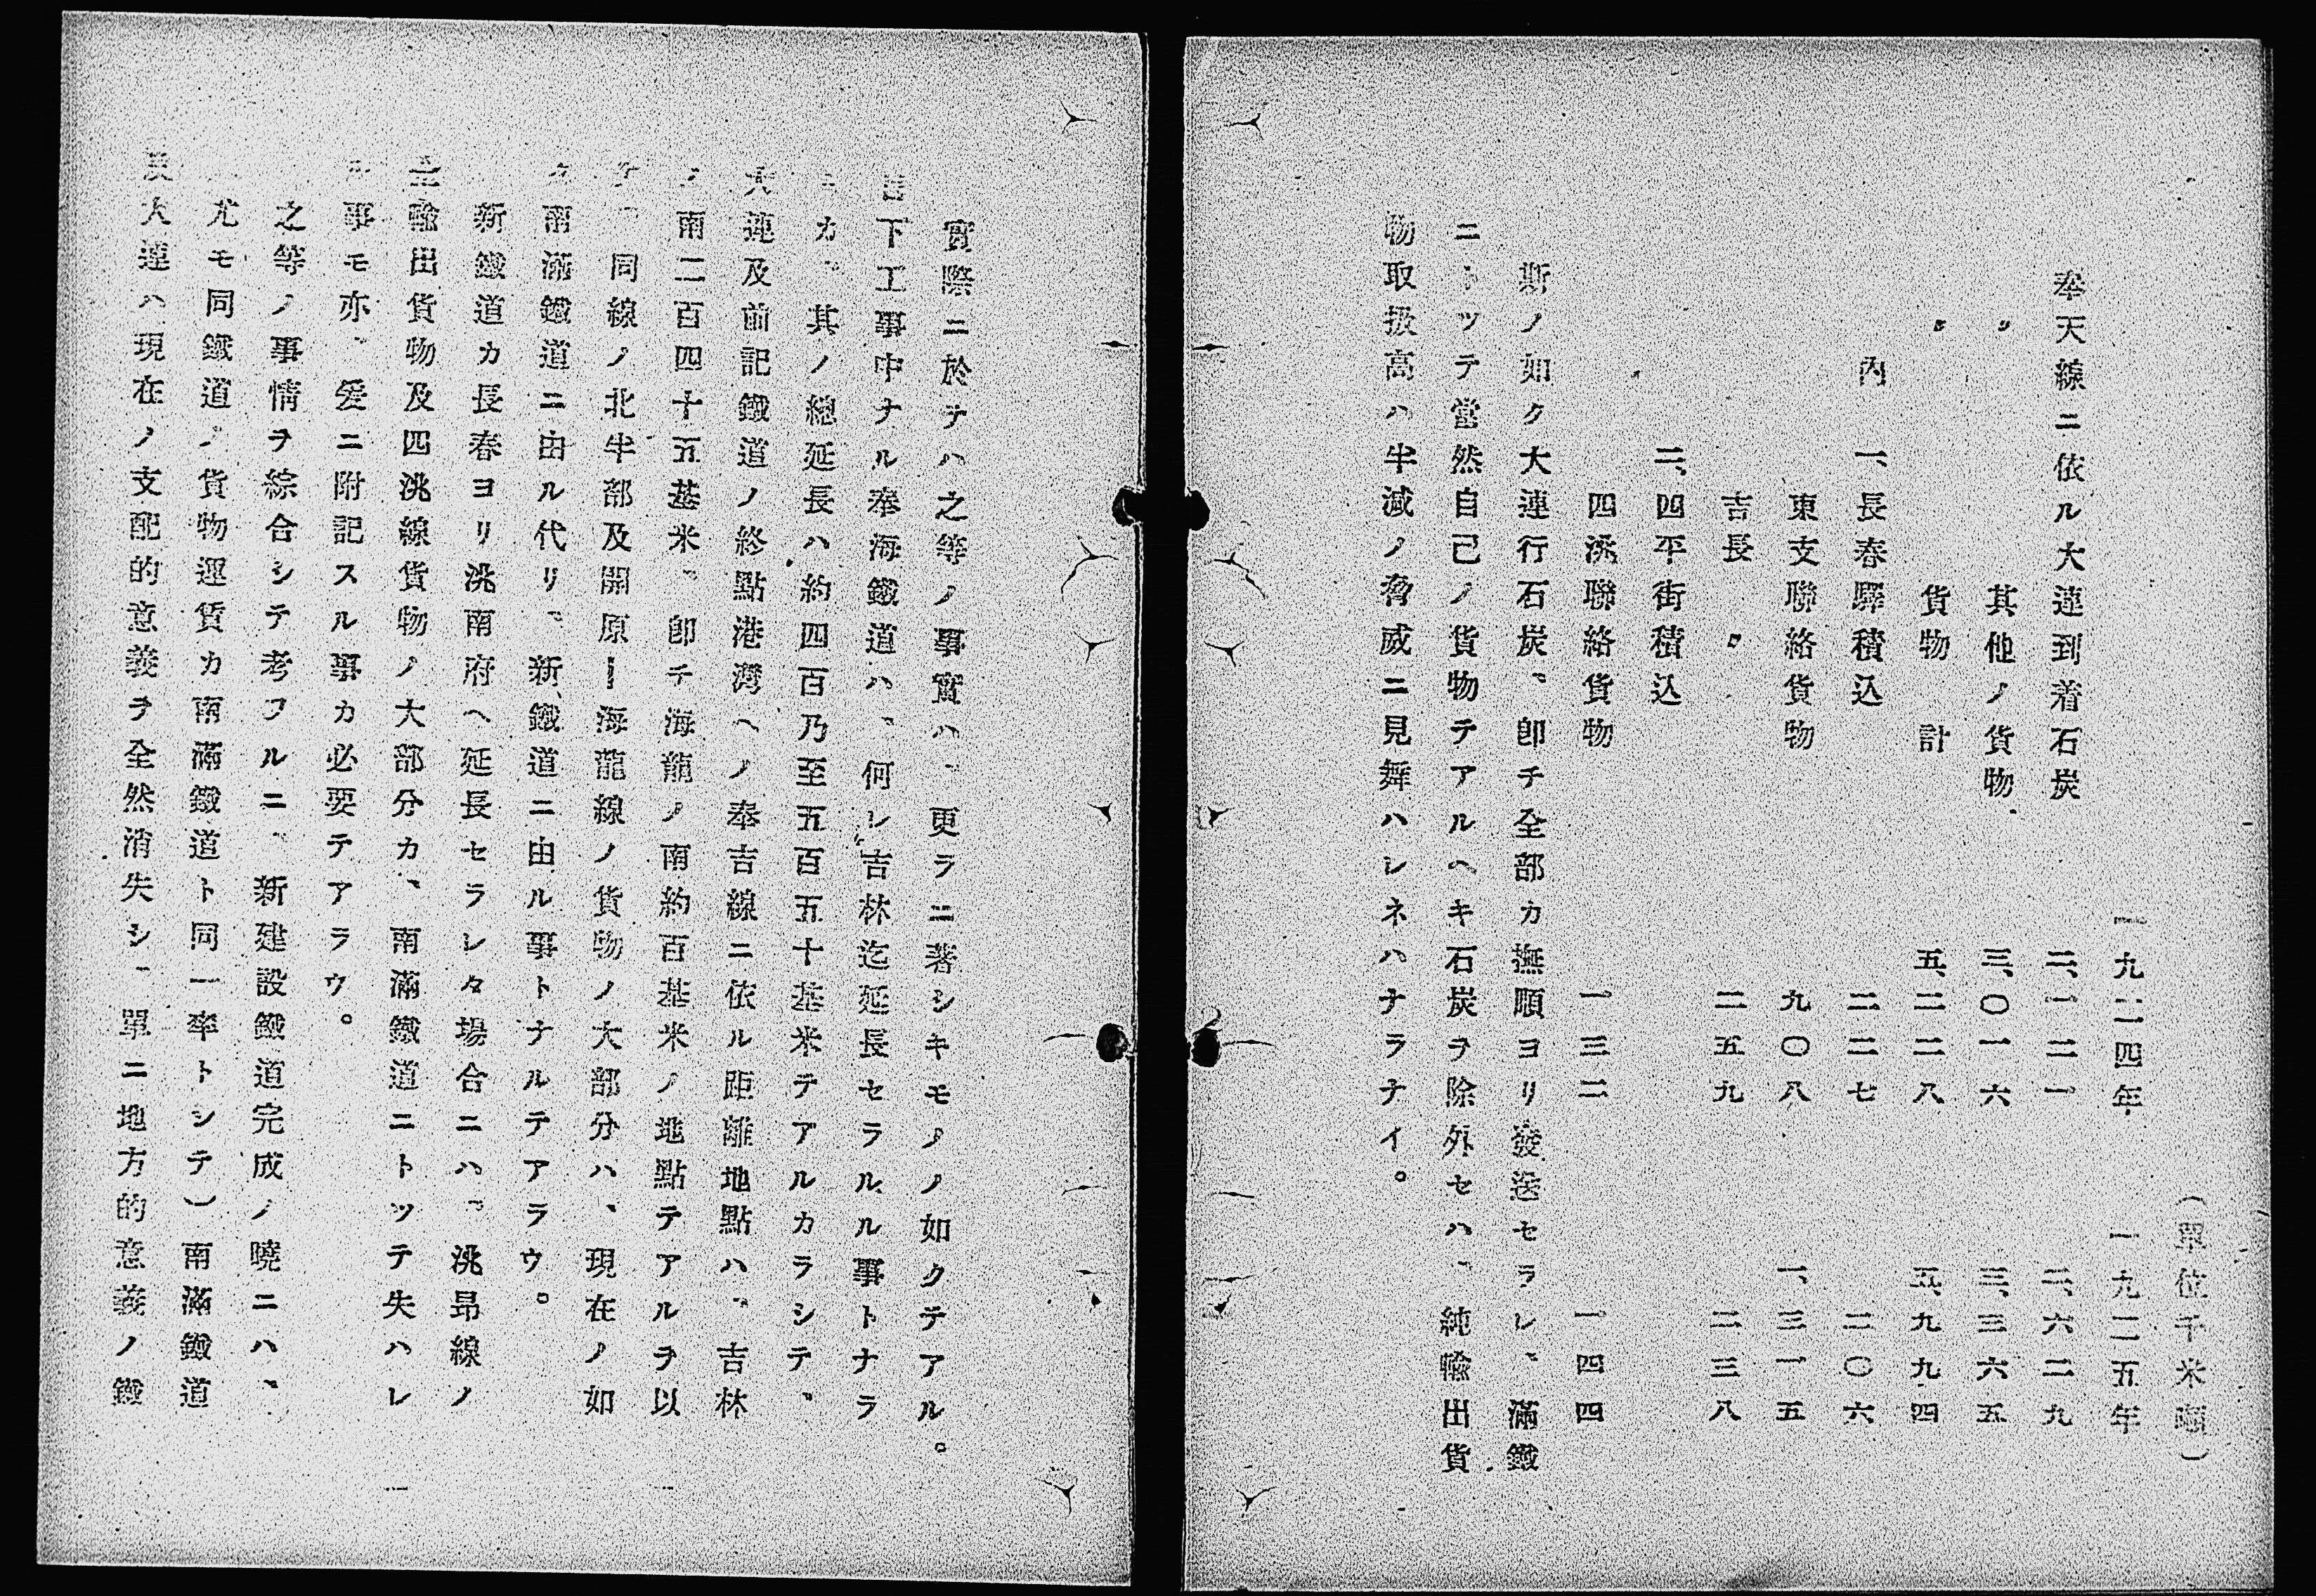 （單位千米噸）
一九二四年　一九二五年
奉天線ニ依ル大連到着石炭　二、一二一　二、六二九
〃　其他ノ貨物　三、〇一六　三、三六五
〃　貨物計　五、二二八　五、九九四
內　一、長春驛積込　二二七　二〇六
東支聯絡貨物　九〇八　一、三一五
吉長　〃　二五九　二三八
二、四平街積込
四洮聯絡貨物　一三二　一四四
斯ノ如ク大連行石炭、卽チ全部カ撫順ヨリ發送セラレ、滿鐵
ニトツテ當然自己ノ貨物テアルヘキ石炭ヲ除外セハ、純輸出貨
物取扱高ハ半減ノ脅威ニ見舞ハレネハナラナイ。
實際ニ於テハ之等ノ事實ハ、更ラニ著シキモノノ如クテアル。
目下工事中ナル奉海鐵道ハ、何レ吉林迄延長セラルル事トナラ
カ、其ノ總延長ハ約四百乃至五百五十基米テアルカラシテ、
大連及前記鐵道ノ終點港灣ヘノ奉吉線ニ依ル距離地點ハ、吉林
ノ南二百四十五基米、卽チ海龍ノ南約百基米ノ地點テアルヲ以
テ、同線ノ北半部及開原ー海龍線ノ貨物ノ大部分ハ、現在ノ如
ク南滿鐵道ニ由ル代リ、新鐵道ニ由ル事トナルテアラウ。
新鐵道カ長春ヨリ洮南府ヘ延長セラレタ場合ニハ、洮昂線ノ
輸出貨物及四洮線貨物ノ大部分カ、南滿鐵道ニトツテ失ハレ
ル事モ亦、爰ニ附記スル事カ必要テアラウ。
之等ノ事情ヲ綜合シテ考フルニ、新建設鐵道完成ノ曉ニハ、
尤モ同鐵道ノ貨物運賃カ南滿鐵道ト同一率トシテ）南滿鐵道
大連ハ現在ノ支配的意義ヲ全然消失シ、單ニ地方的意義ノ鐵